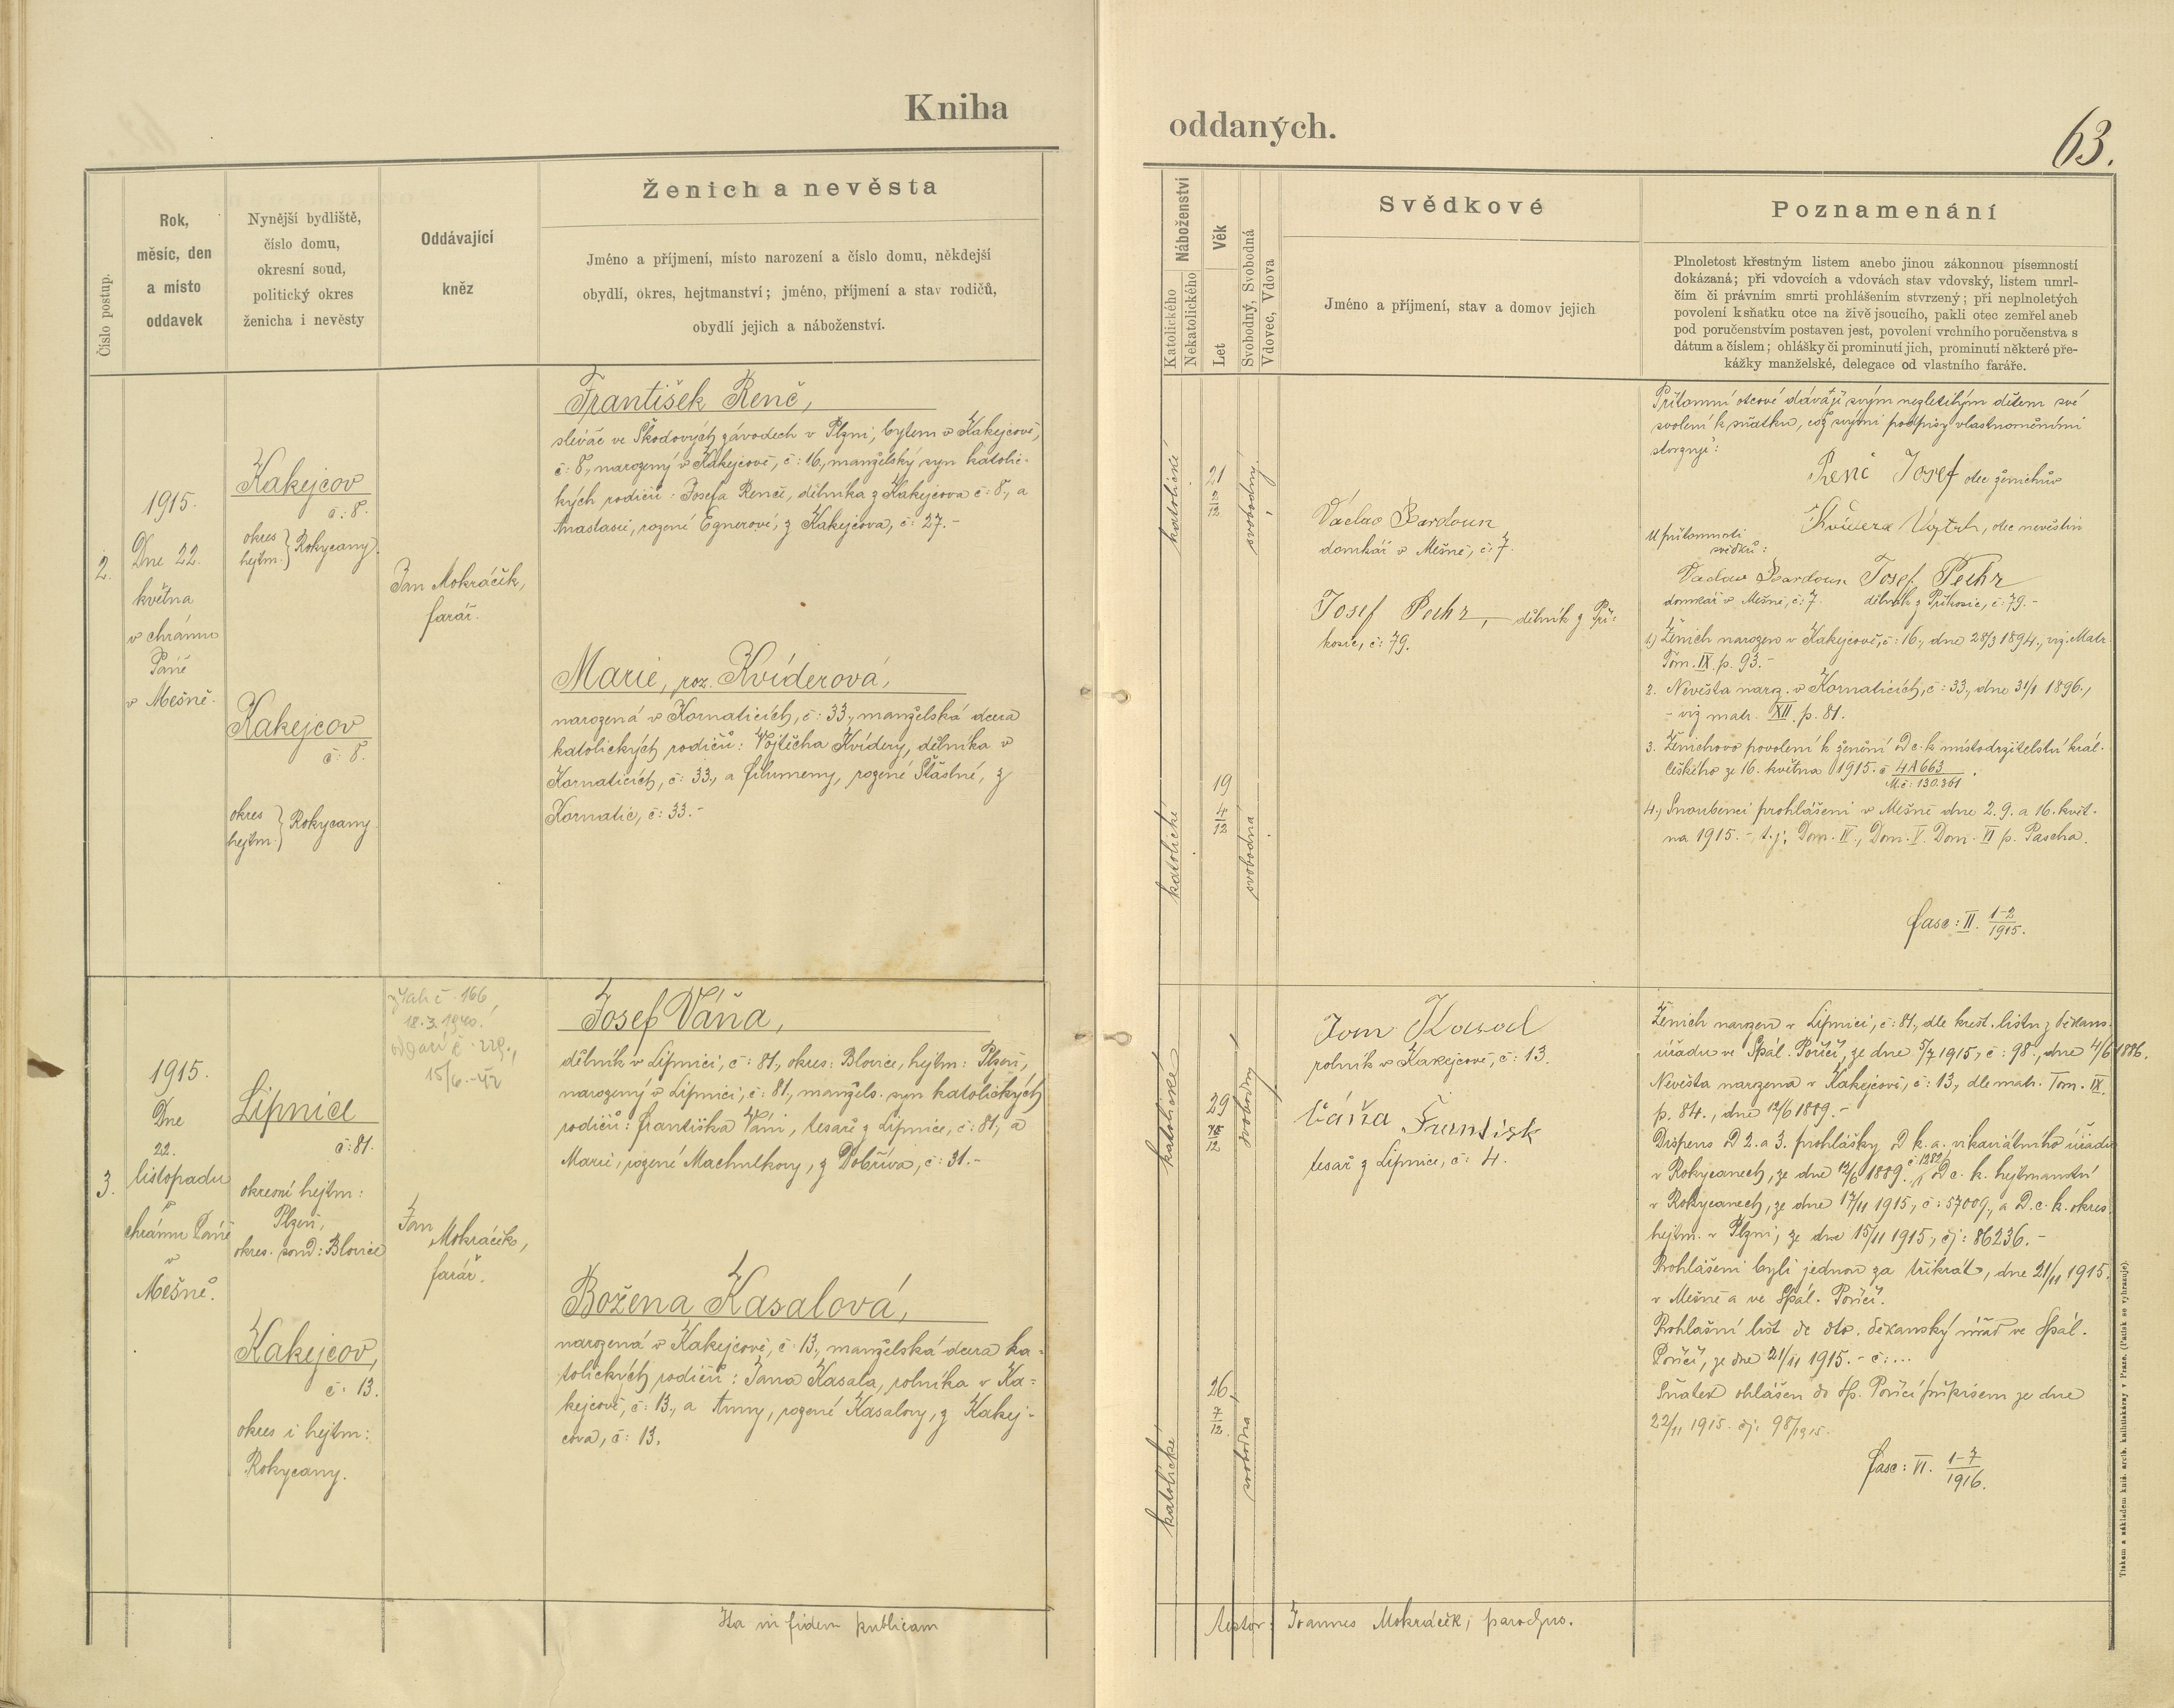 Kniha
oddaných.
63.
Číslo postup.
Rok,
měsíc, den
a místo
oddavek
Nynější bydliště,
číslo domu,
okresní soud,
politický okres
ženicha i nevěsty
Oddávající
kněz
Ženich a nevěsta
Jméno a příjmení, místo narození a číslo domu, někdejší
obydlí, okres, hejtmanství; jméno, příjmení a stav rodičů,
obydlí jejich a náboženství.
Náboženství
Katolického
Nekatolického
Věk
Let
Svobodný, Svobodná
Vdovec, Vdova
Svědkové
Jméno a příjmení, stav a domov jejich
Poznamenání
Plnoletost křestným listem anebo jinou zákonnou písemností
dokázaná; při vdovcích a vdovách stav vdovský, listem umrl-
čím či právním smrti prohlášením stvrzený; při neplnoletých
povolení k sňatku otce na živě jsoucího, pakli otec zemřel aneb
pod poručenstvím postaven jest, povolení vrchního poručenstva s
dátum a číslem; ohlášky či prominutí jich, prominutí některé pře-
kážky manželské, delegace od vlastního faráře.
2.
1915.
Dne 22.
května
v chrámu
Páně
v Mešně.
Kakejcov
č: 8.
okres
hejtm. } Rokycany
Kakejcov
č: 8.
okres
hejtm. } Rokycany
Jan Mokráček,
farář.
František Renč,
slévač ve Škodových závodech v Plzni, bytem v Kakejcově,
č: 8., narozený v Kakejcově, č: 16., manželský syn katolic-
kých rodičů: Josefa Renče, dělníka z Kakejcova č: 8., a
Anastasie, rozené Egnerové, z Kakejcova, č: 27.-
Marie, roz. Kvíderová,
narozená v Kornaticích, č: 33., manželská dcera
katolických rodičů: Vojtěcha Kvídery, dělníka v
Kornaticích, č: 33., a Filumeny, rozené Šťastné, z
Kornatic, č: 33.-
katolické
21
2/12
svobodný
katolické
19
4/12
svobodná
Václav Bardoun
domkář v Mešně, č: 7.
Josef Pechr, dělník z Pří-
kosic, č: 79.
Přítomní otcové dávají svým nezletilým dětem své
svolení k sňatku, což svými podpisy vlastnoručními
stvrzují:
Renč Josef otec ženichův
Kvídera Vojtěch, otec nevěstin
U přítomnosti
svědků:
Václav Bardoun Josef Pechr
domkář v Mešně, č: 7. dělník z Příkosic, č: 79.-
1.) Ženich narozen v Kakejcově, č: 16., dne 28/3 1894., viz. Matr.
Tom. IX. p. 93.-
2. Nevěsta naroz. v Kornaticích, č: 33., dne 31/1 1896.,
- viz matr. XII. p. 81.
3. Ženichovo povolení k ženění D c. k. místodržitelství král.
Českého ze 16. května 1915. č 4A663
M.č: 130.361.
4.) Snoubenci prohlášeni v Mešně dne 2. 9. a 16. květ-
na 1915. - t. j. Dom. IV., Dom. V. Dom. VI p. Pascha.
fasc: II. 1-2/1915.
3.
1915.
Dne
22.
listopadu
v
chrámu Páně
v
Mešně.
Lipnice
č: 81.
okresní hejtm:
Plzeň,
okres. soud: Blovice
Kakejcov,
č: 13.
okres i hejtm:
Rokycany.
č. 166,
18. 3. 1940.
č. 229.,
15/6.-42
Jan
Mokráček,
farář.
Josef Váňa,
dělník v Lipnici, č: 81., okres: Blovice, hejtm: Plzeň,
narozený v Lipnici, č: 81., manžels. syn katolických
rodičů: Františka Váni, tesaře z Lipnice, č: 81., a
Marie, rozené Machulkovy, z Dobříva, č: 31.-
Božena Kasalová,
narozená v Kakejcově, č: 13., manželská dcera ka-
tolických rodičů: Jana Kasala, rolníka v Ka-
kejcově, č: 13., a Anny, rozené Kasalovy, z Kakej-
cova, č: 13.
katolické
29
svobodný
katolické
26
7/12
svobodna
Jan Kasal
rolník v Kakejcově, č: 13.
Váňa František
tesař z Lipnice, č: 4.
Ženich narozen v Lipnici, č: 81., dle křest. listu z děkans.
úřadu ve Spál. Poříčí, ze dne 5/7 1915, č: 98., dne 4/6 1886.
Nevěsta narozena v Kakejcově, č: 13., dle matr. Tom. IX.
p. 84., dne 12/6 1889.-
Dispens D 2. a 3. prohlášky, D k. a. vikariátního úřadu
v Rokycanech, ze dne 12/6 1889. č: 1282, D c. k. hejtmanství
v Rokycanech, ze dne 17/11 1915, č: 57009., a D. c. k. okres.
hejtm. v Plzni, ze dne 15/11 1915, čj: 86236.-
Prohlášeni byli jednou za třikrát, dne 21/11 1915.
v Mešně a ve Spál. Poříčí.
Prohlášní list de dto. děkanský úřad ve Spál.
Poříčí, ze dne 21/11 1915. - č: ...
Sňatek ohlášen do Sp. Poříčí přípisem ze dne
22/11 1915. čj: 98/1915.
fasc: VI. 1-7/1916.
Ita in fidem publicam
testor: Joannes Mokráček, parochus.
Tiskem a nákladem kníž. arcib. knihtiskárny v Praze. (Patisk se vyhrazuje).